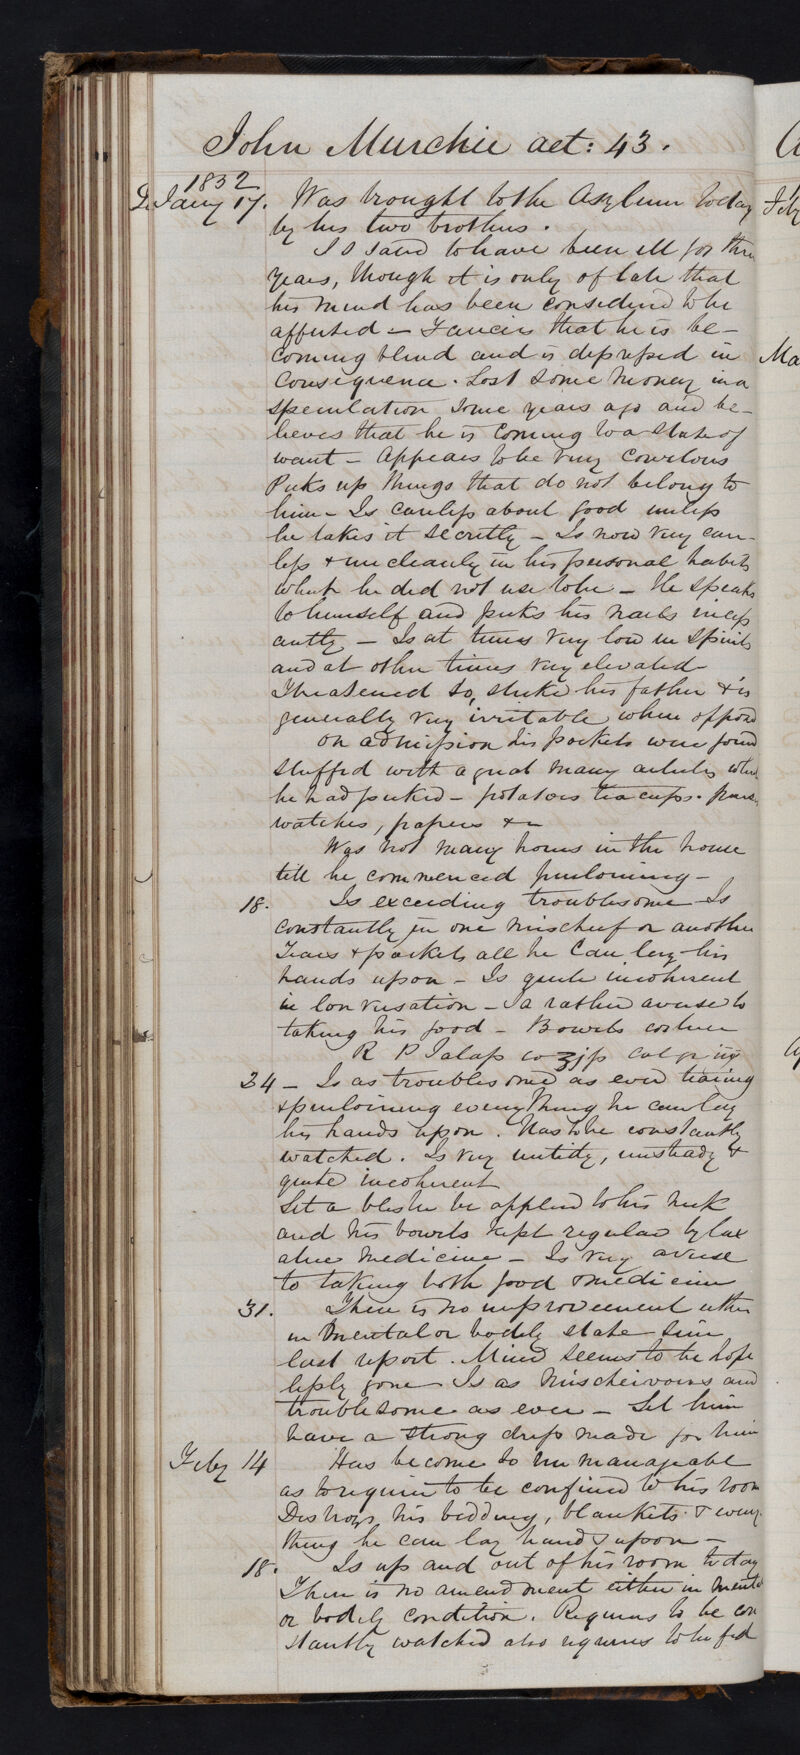 John Murchie aet: 43.
1832
Jany 17. Was brought to the Asylum today
by his two brothers.
Is said to have been ill for three
years, though it is only of late that
his mind has been considered to be
affected — Fancies that he is be-
coming blind and is depressed in
consequence. Lost some money in a
speculation some years ago and be-
lieves that he is coming to a state of
want — Appears to be very covetous
Picks up things that do not belong to
him — Is careless about food unless
he takes it secretly — Is now very care-
less & uncleanly in his personal habits
which he did not use to be — He speaks
to himself and picks his nails incess
antly — Is at times very low in spirits
and at other times very elevated
Threatened to strike his father & is
generally very irritable when opposed
On admission his pockets were found
stuffed with a great many articles which
he had picked — potatoes tea cups.
watches, papers &c
Was not many hours in the house
till he commenced purloining —
18. Is exceeding troublesome Is
constantly in one mischief or another
Tears & pockets all he can lay his
hands upon — Is quite incoherent
in conversation — Is rather averse to
taking his food — Bowels costive
R P Jalap co ʒjss Cal gr iij
24 — Is as troublesome as ever tearing
& purloining everything he can lay
his hands upon. Has to be constantly
watched. Is very untidy, unsteady &
quite incoherent
Let a blister be applied to his neck
and his bowels kept regular by lax
ative medicine — Is very averse
to taking both food & medicine
31. There is no improvement either
in mental or bodily state since
last report. Mind seems to be hope
lessly gone Is as mischeivous and
troublesome as ever — Let him
have a strong dress made for him
Feby 14 Has become so unmanageable
as to require to be confined to his room
Destroys his bedding, blankets & every
thing he can lay hands upon —
18. Is up and out of his room to day
There is no amendment either in mental
or bodily condition. Requires to be con
stantly watched also requires to be fed
Feby
Ma